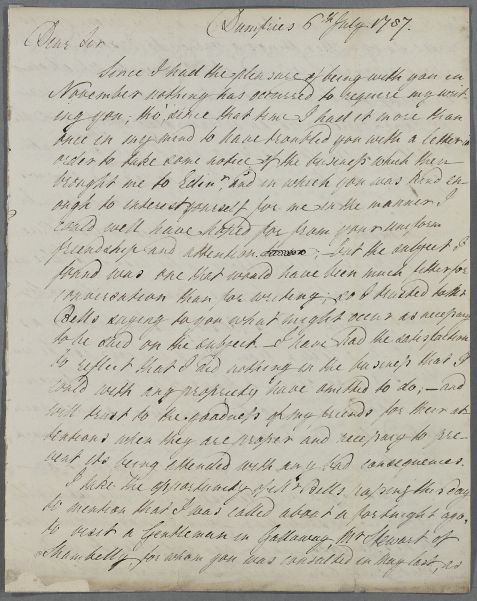 Dumfries 6th July 1787.
Dear Sir
Since I had the pleasure of being with you in
November nothing has occurred to require my writ-
ing you; tho' since that time I had it more than
once in my mind to have troubled you with a letter in
order to take some notice of the business which then
brought me to Edinr, and in which you was kind en-
ough to interest yourself for me in the manner I
could well have hoped for from your uniform
friendship and attention; but the subject I
found was one that would have been much better for
conversation than for writing; so I trusted to Mr
Bells saying to you what might occur as necessary
to be said on the subject. I have had the satisfaction
to reflect that I did nothing in the business that I
could with any propriety have omitted to do; — and
will trust to the goodness of my friends for their at-
tentions when they are proper and necessary to pre-
vent its being attended with any bad consequences.
I take the opportunity of Mr Bells passing this day
to mention that I was called about a fortnight ago,
to visit a Gentleman in Galloway, Mr Stewart of
Shambelly, for whom you was consulted in May last, as